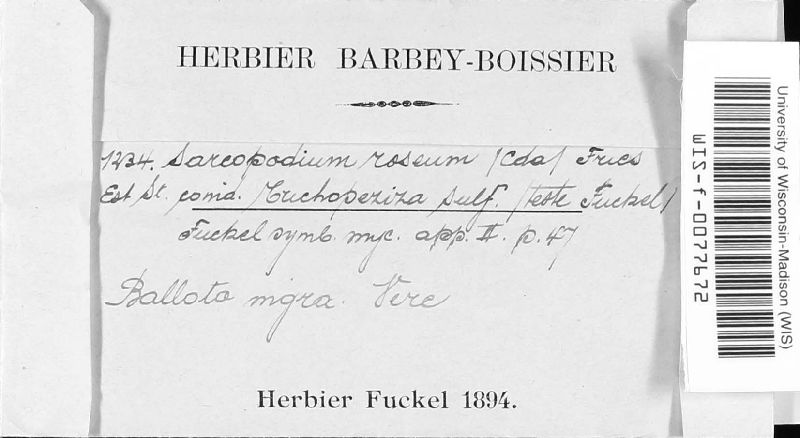 HERBIER BARBEY-BOISSIER
1234. Sarcopodium roseum /Cda/ Fries
Est St. conid. Trichopeziza sulf. /teste Fuckel/
Fuckel symb. myc. app. II. p. 47
Ballota nigra. Vere
Herbier Fuckel 1894.
University of Wisconsin-Madison (WIS)
WIS-f-0077672